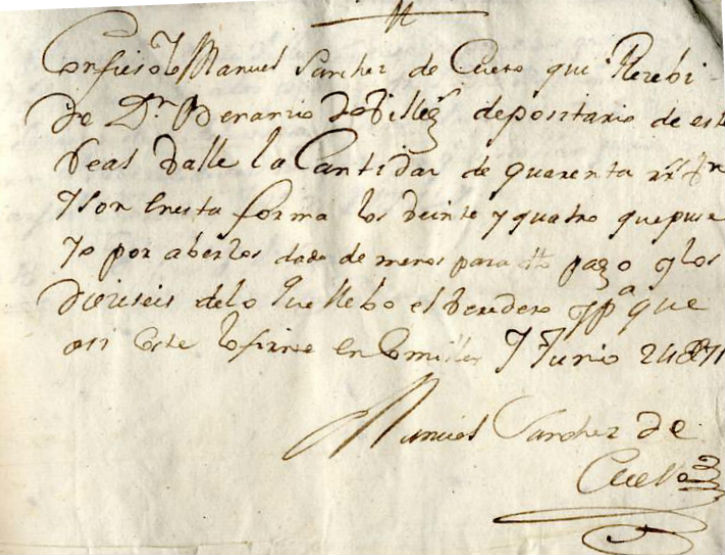 Confieso Yo Manuel Sanchez de Cueto que Rezebi
de Dn. Benanzio de Villeg.s depositario de este
Real Valle la Cantidad de quarenta rrs. Vn
Y son en esta forma los veinte y quatro que puse
Yo por aberlos dado de menos para dho pago y los
diezseis de lo que llebo el beredero y pa que
asi Coste lo firme en Comillas y Junio 24 de
Manuel Sanchez de
Cueto